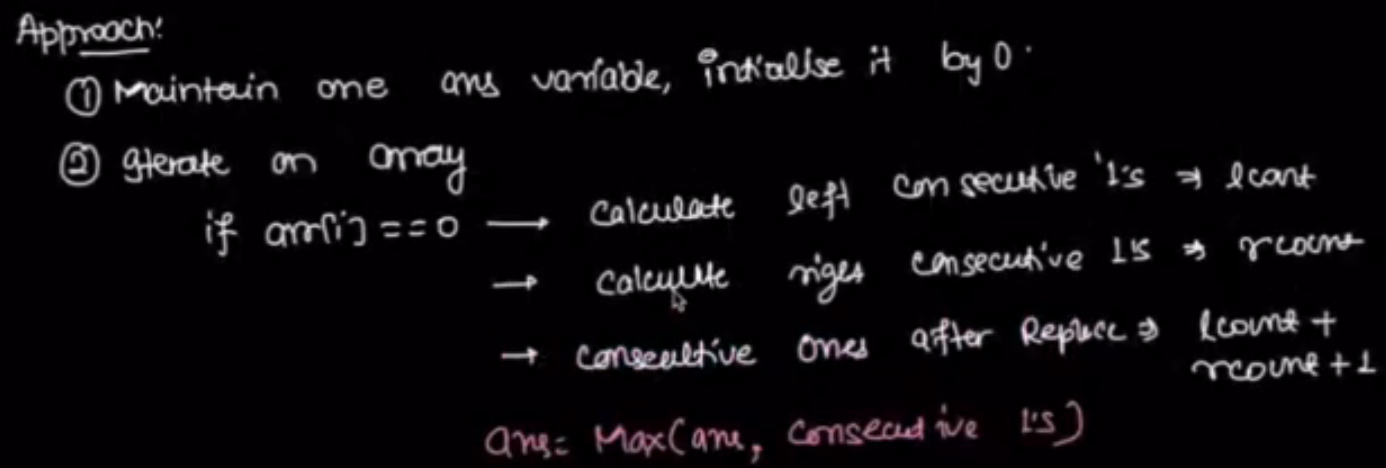 Approach:
① Maintain one ans variable, initialise it by 0.
② Iterate on array
if arr[i] == 0 → Calculate left consecutive '1's ⇒ lcount
→ Calculate right consecutive 1's ⇒ rcount
→ Consecutive ones after Replace ⇒ lcount +
rcount + 1
ans = Max(ans, Consecutive 1's)